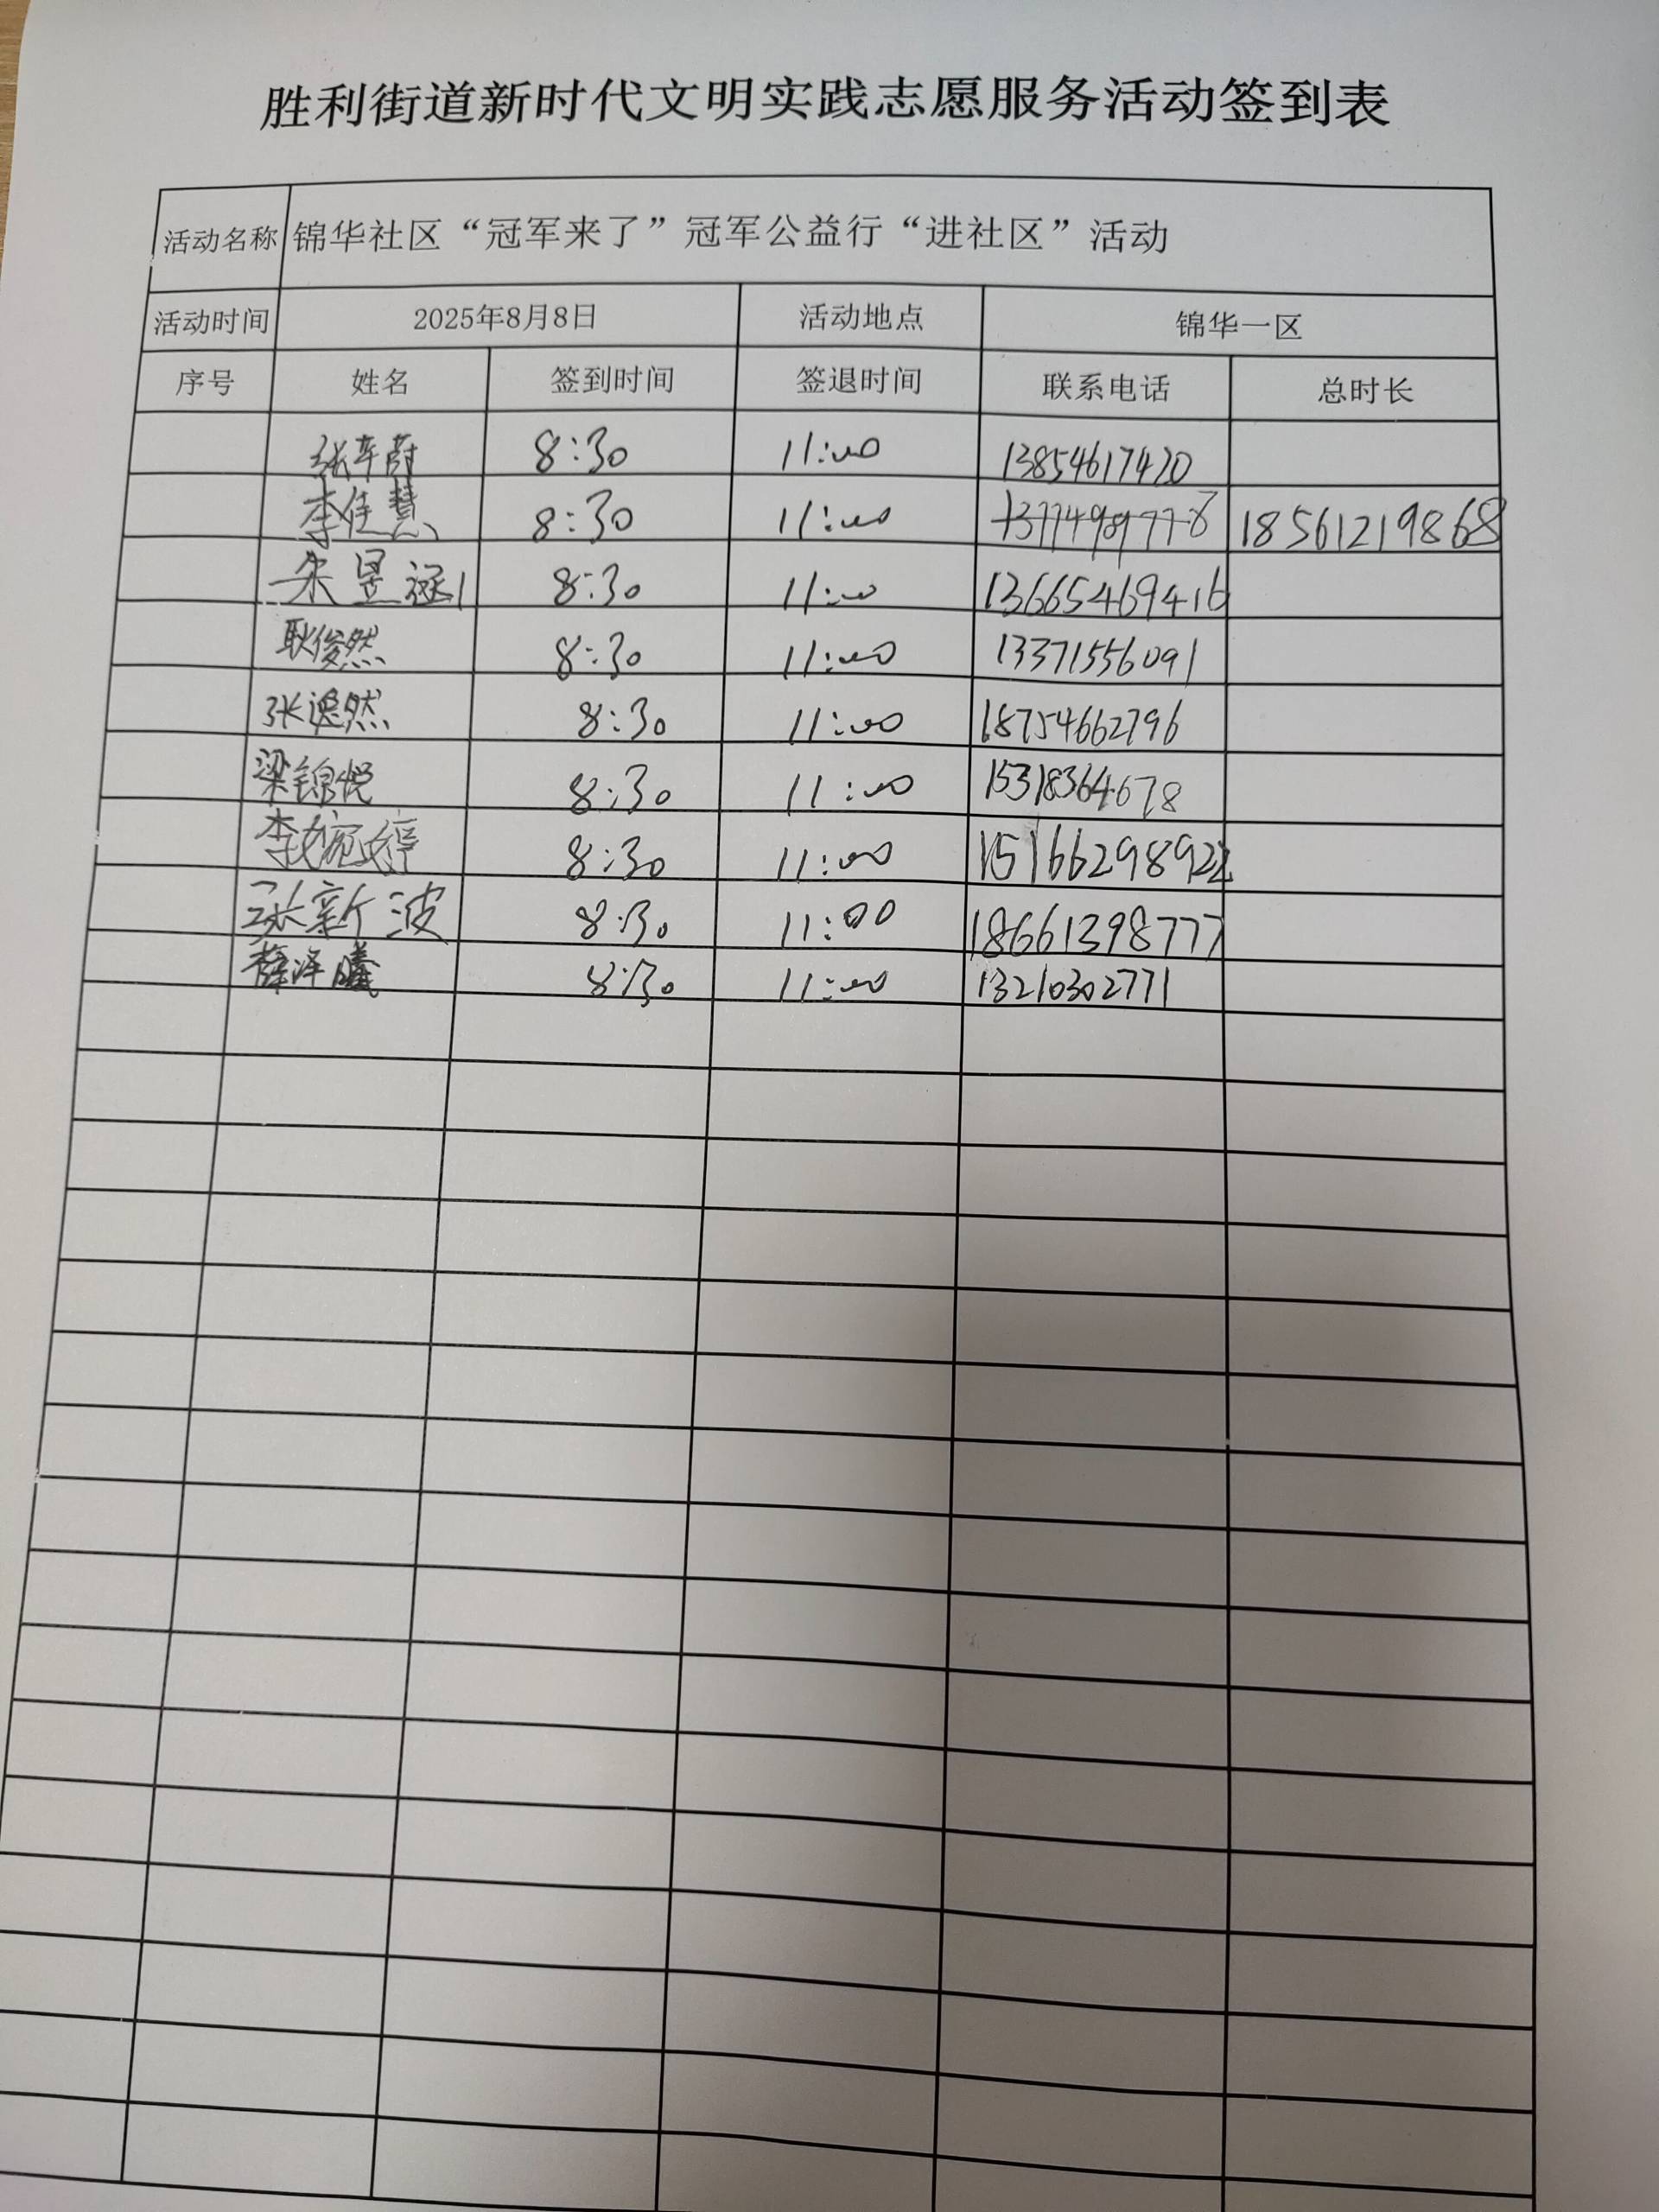 胜利街道新时代文明实践志愿服务活动签到表
活动名称 锦华社区“冠军来了”冠军公益行“进社区”活动
活动时间 2025年8月8日 活动地点 锦华一区
序号 姓名 签到时间 签退时间 联系电话 总时长
8:30 11:00 13854617420
李佳慧 8:30 11:00 18561219868
朱昱 8:30 11:00 13665469416
耿俊然 8:30 11:00 13371556091
张逸然 8:30 11:00 18754662796
梁锦悦 8:30 11:00 15318364678
李婉婷 8:30 11:00
张新波 8:30 11:00 18661398777
薛泽曦 8:30 11:00 13210302771